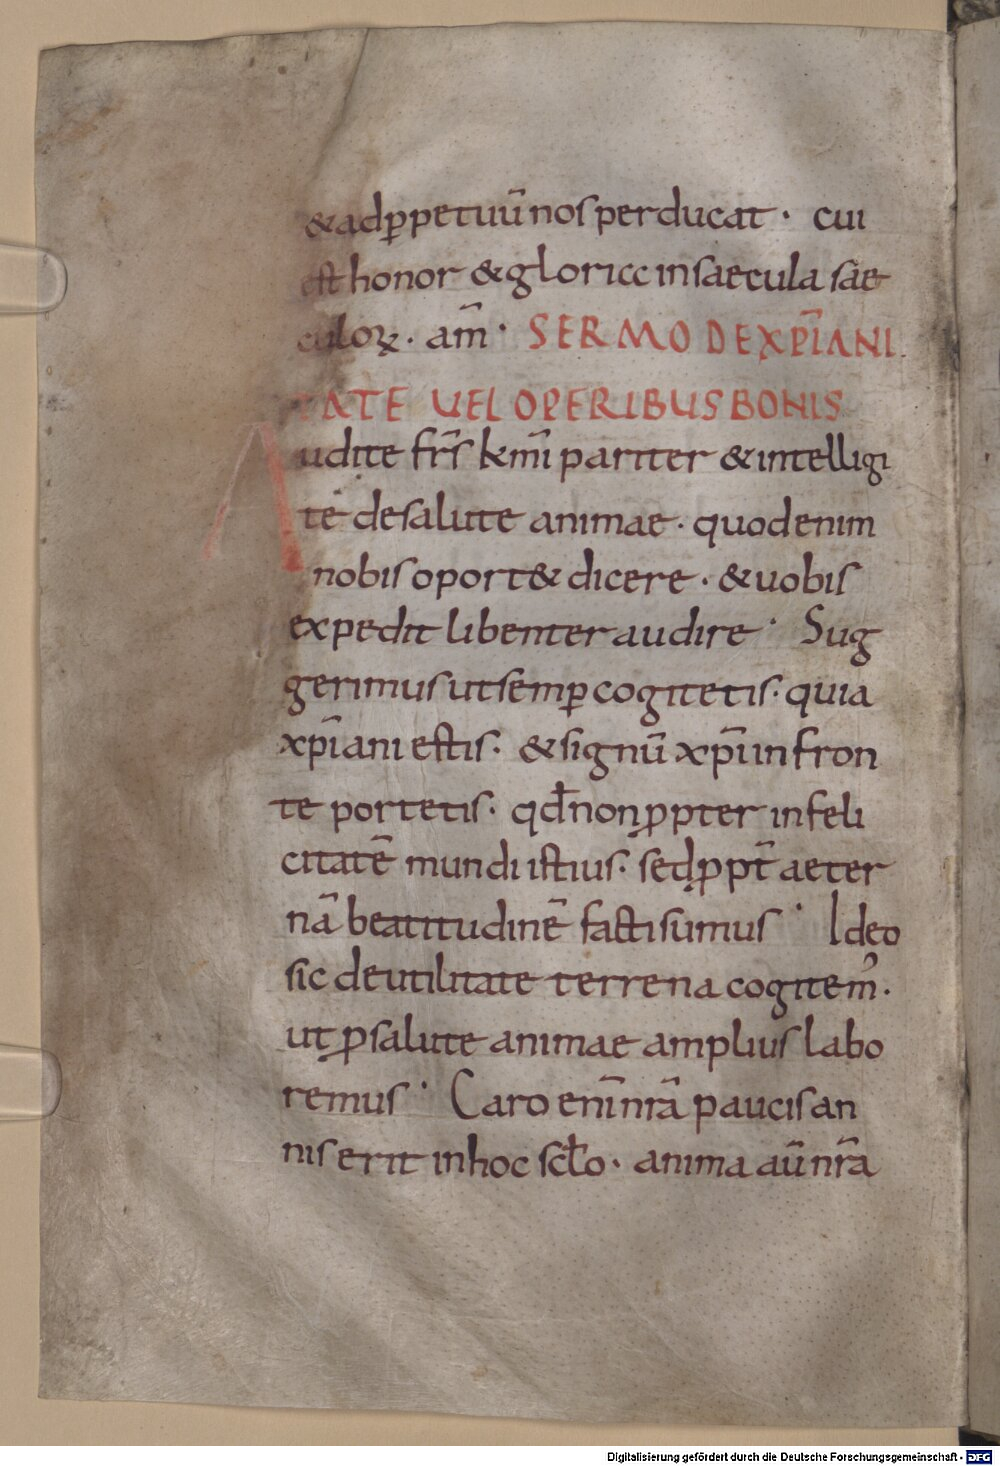 & ad ꝑpetuū nos perducat · cui
est honor & gloria in saecula sae
culoꝝ · am̄ · SERMO DE XP̄IANI
TATE UEL OPERIBUS BONIS
Audite fr̄s km̄i pariter & intelligi
te de salute animae · quod enim
nobis oport& dicere · & uobis
expedit libenter audire · Sug
gerimus ut semꝑ cogitetis · quia
xp̄iani estis · & signū xp̄i in fron
te portetis · qđ non ꝓpter infeli
citatē mundi istius · sed ꝓpt̄ aeter
nā beatitudinē facti sumus · Ideo
sic de utilitate terrena cogitem᾽ ·
ut ꝓ salute animae amplius labo
remus · Caro enī nr̄a paucis an
nis erit in hoc scło · anima aū nr̄a
Digitalisierung gefördert durch die Deutsche Forschungsgemeinschaft - DFG